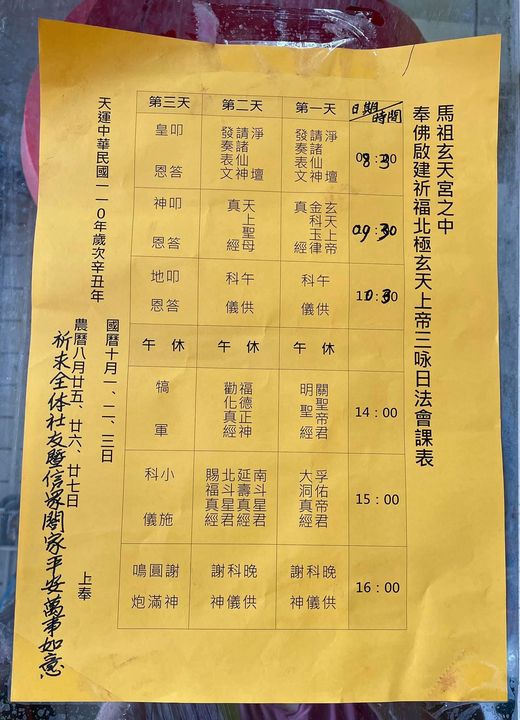 馬祖玄天宮之中
奉佛啟建祈福北極玄天上帝三詠日法會課表
日期
時間
第一天
第二天
第三天
08:30
淨壇
請諸仙神
發奏表文
淨壇
請諸仙神
發奏表文
叩答
皇恩
09:30
玄天上帝
金科玉律
真經
天上聖母
真經
叩答
神恩
10:30
午供
科儀
午供
科儀
叩答
地恩
午休
午休
午休
14:00
關聖帝君
明聖經
福德正神
勸化真經
犒軍
15:00
孚佑帝君
大洞真經
南斗星君
延壽真經
北斗星君
賜福真經
小施
科儀
16:00
晚供
科儀
謝神
晚供
科儀
謝神
謝神
圓滿
鳴炮
天運中華民國一一0年歲次辛丑年
國曆十月一、二、三日
農曆八月廿五、廿六、廿七日
祈求全体社友暨信眾閤家平安萬事如意
上奉